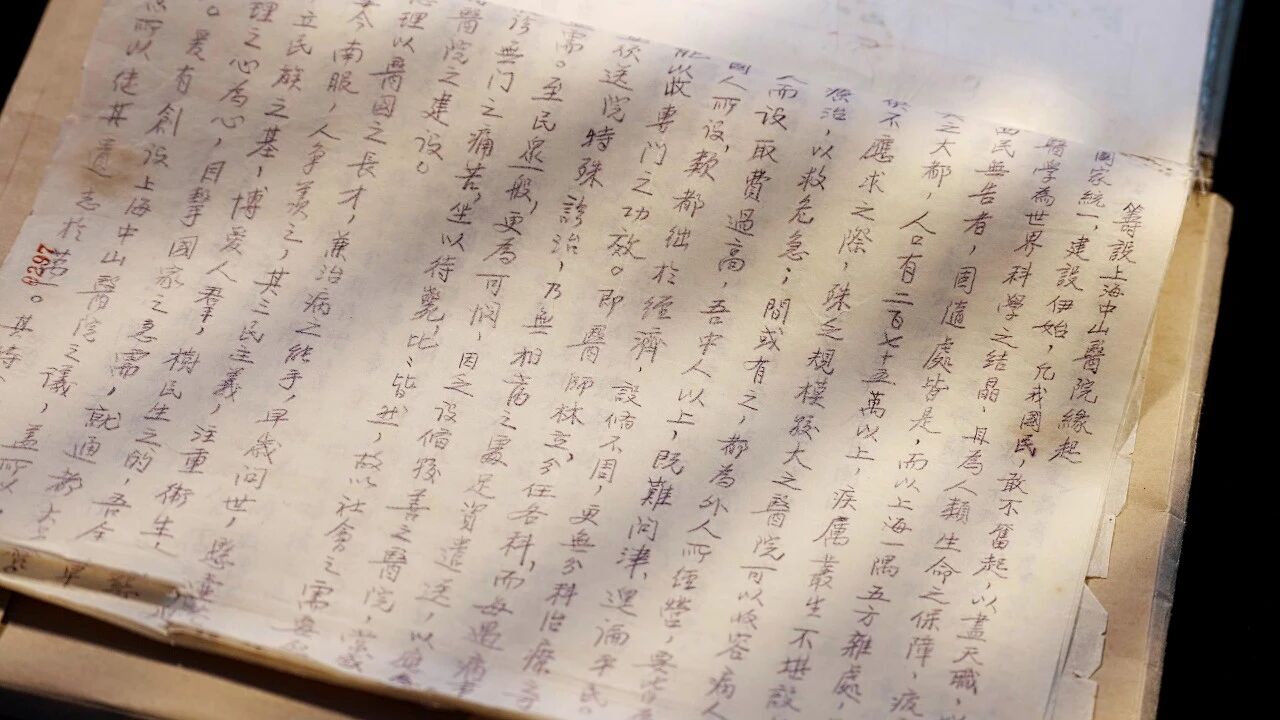 籌設上海中山醫院緣起
國家統一,建設伊始,允我國民,敢不奮起,以盡天職,
醫學為世界科學之結晶、且為人類生命之保障,疲
四民無告者,固隨處皆是,而以上海一隅五方雜處,
之大都,人口有二百七十五萬以上,疾厲叢生不堪設
不應求之際,殊乏規模較大之醫院可以收容病人
療治,以救危急;間或有之,都為外人所經營,要皆
人而設取費過高,吾中人以上,既難問津,遑論平民。
國人所設,類都絀於經濟,設備不周,更無分科治療
能以收專門之功效。即醫師林立,分任各科,而每遇病
欲送院特殊診治,乃無相當之處足資遣送,以
需。至民眾一般,更為可憫,因之設備較善之醫院,
診無門之痛苦,坐以待斃,比比皆然,故以社會之需要
醫院之建設。
理以醫國之長才,兼治病之能手,早歲問世,懸壺
今南服,人爭羨之,其三民主義,注重衛生,
立民族之基,博愛人羣,樹民生之的,吾全
理之心為心,目擊國家之急需,就通都大
。爰有創設上海中山醫院之議,蓋所以
所以使其遺志於萬一。其特
0297